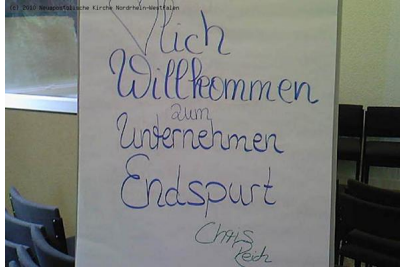 (c) 2010 Neuapostolische Kirche Nordrhein-Westfalen
lich
Willkommen
zum
Unternehmen
Endspurt
Chris
Reich